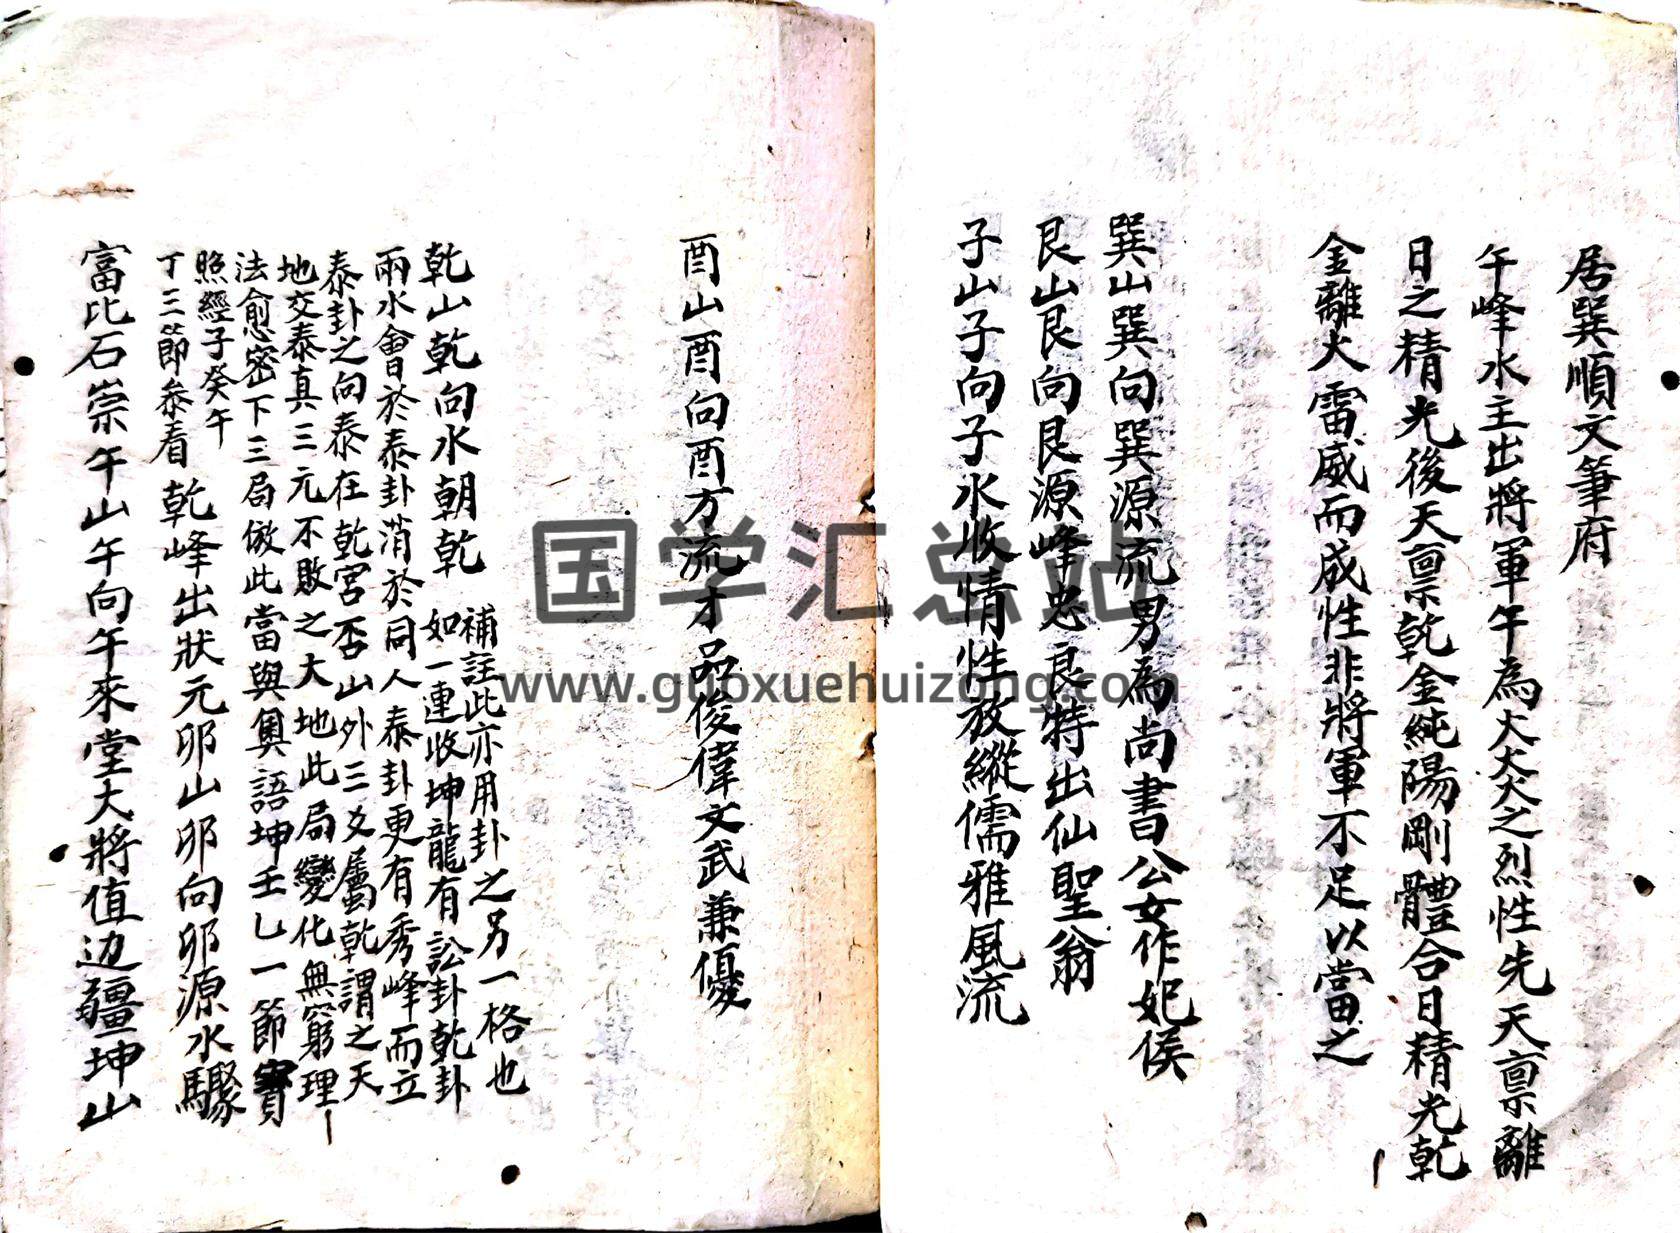 居巽順文筆府
午峰水主出將軍午為大大大之烈性先天禀離
日之精光後天禀乾金純陽剛體合日精光乾
金離火雷威而成性非將軍不足以當之
巽山巽向巽源流男為尚書公女作妃侯
艮山艮向艮源峰忠良特出仙聖翁
子山子向子水收情性放縱儒雅風流
酉山酉向酉方流才品俊偉文武兼優
乾山乾向水朝乾
補註此亦用卦之另一格也
如一連收坤龍有訟卦乾卦
兩水會於泰卦消於同人泰卦更有秀峰而立
泰卦之向泰在乾宮否山外三爻屬乾謂之天
地交泰真三元不敗之大地此局變化無窮理
法愈密下三局倣此當與奧語坤壬乙一節寶
照經子癸午
丁三節參看
乾峰出狀元卯山卯向卯源水驟
富比石崇午山午向午來堂大將值边疆坤山
国学汇总站
www.guoxuehuizong.com